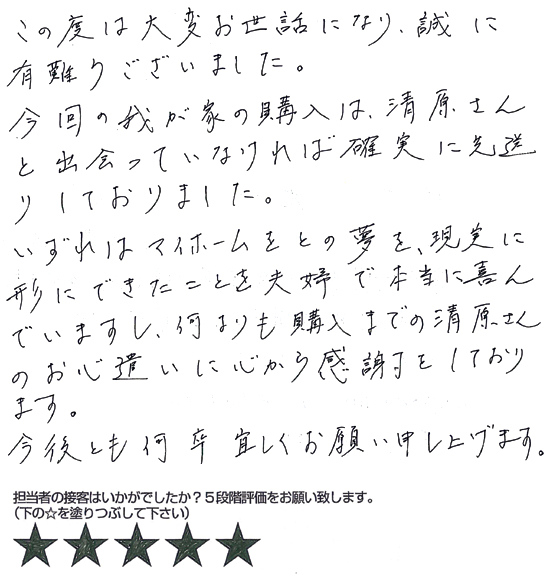 この度は大変お世話になり、誠に
有難うございました。
今回の我が家の購入は、清原さん
と出会っていなければ確実に先送
りしておりました。
いずれはマイホームをとの夢を、現実に
形にできたことを夫婦で本当に喜ん
でいますし、何よりも購入までの清原さん
のお心遣いに心から感謝をしており
ます。
今後とも何卒宜しくお願い申し上げます。
担当者の接客はいかがでしたか？５段階評価をお願い致します。
（下の☆を塗りつぶして下さい）
★★★★★